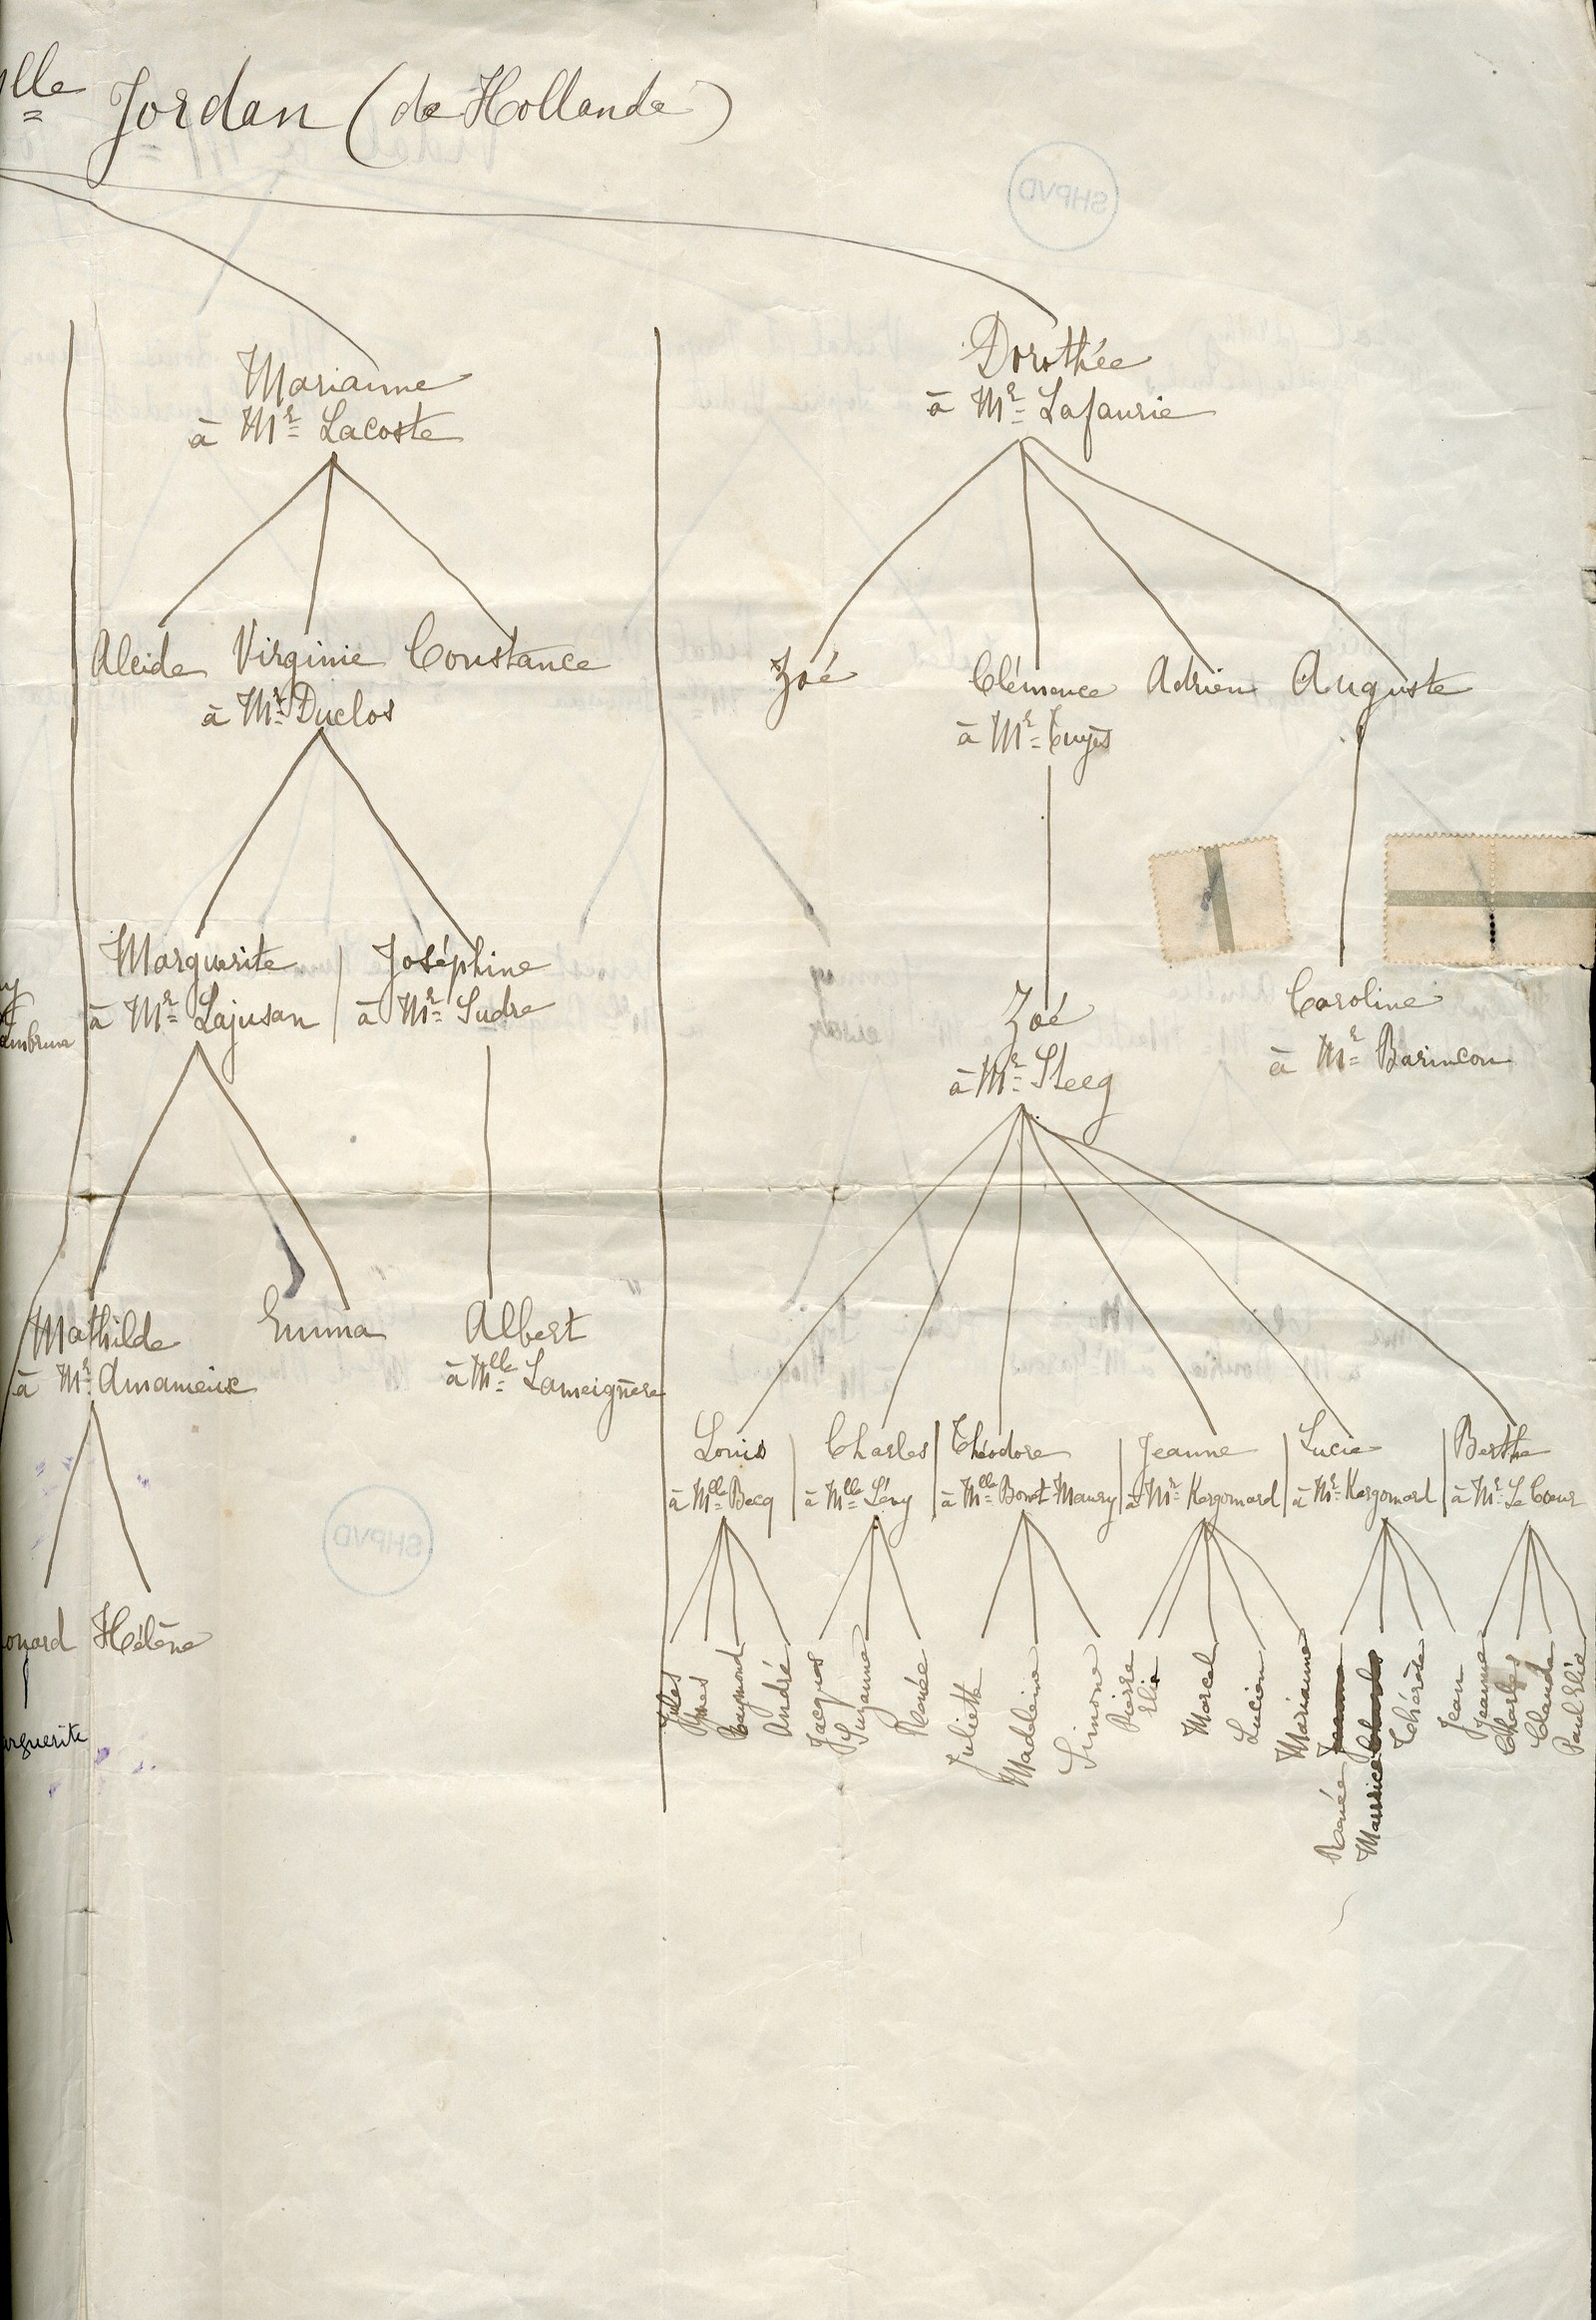 lle Jordan (de Hollande)
Marianne
à Mr Lacoste
Dorothée
à Mr Lafaurie
Alcide Virginie Constance
à Mr Duclos
Zoé Clémence Adrien Auguste
à Mr Cuyès
Marguerite Joséphine
à Mr Lajusan à Mr Sudre
Zoé
à Mr Steeg
Caroline
à Mr Barincou
Mathilde Emma Albert
à Mr Amanieux à Mlle Lameignère
Louis Charles Théodore Jeanne Lucie Berthe
à Mlle Becq à Mlle Lévy à Mlle Bonet-Maury à Mr Kergomard à Mr Kergomard à Mr Le Coeur
onard Hélène
Jules
Agnes
Raymond
André
Jacques
Suzanne
Renée
Juliette
Madeleine
Simone
Pierre
Elie
Marcel
Lucien
Marianne
Renée
Maurice
Thérèse
Jean
Jeanne
Charles
Claude
Paul Elie
arguerite
SHPVD
SHPVD